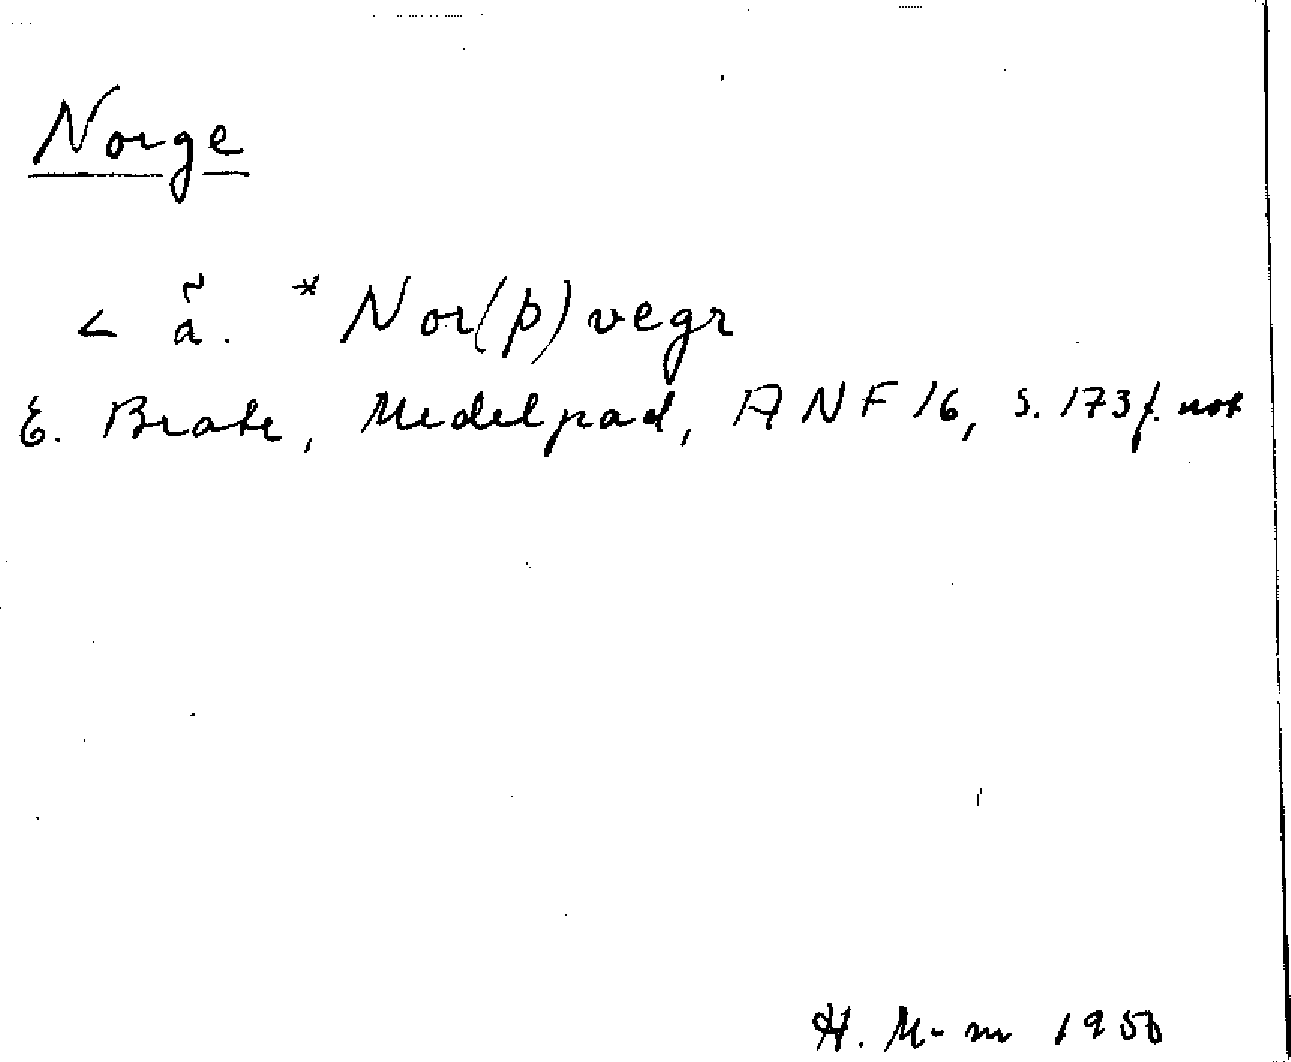 Norge
< ã. *Nor(þ)vegr
E. Brate, Medelpad, ANF 16, s. 173 f. not
H. M-m 1950